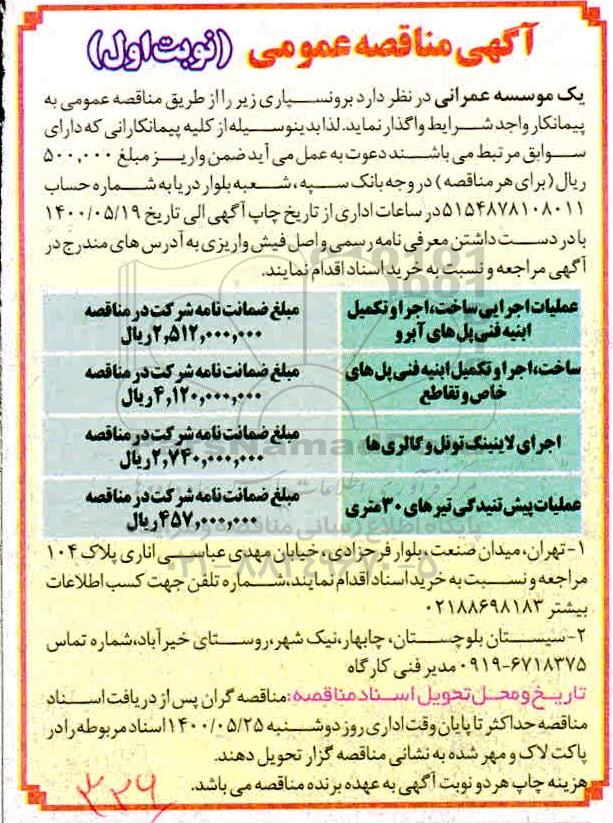 آگهی مناقصه عمومی (نوبت اول)
یک موسسه عمرانی در نظر دارد برونسپاری زیر را از طریق مناقصه عمومی به
پیمانکار واجد شرایط واگذار نماید. لذا بدینوسیله از کلیه پیمانکارانی که دارای
سوابق مرتبط می باشند دعوت به عمل می آید ضمن واریز مبلغ ۵۰۰,۰۰۰
ریال (برای هر مناقصه) در وجه بانک سپه، شعبه بلوار دریا به شماره حساب
۵۱۵۴۸۷۸۱۰۸۰۱۱ در ساعات اداری از تاریخ چاپ آگهی الی تاریخ ۱۴۰۰/۰۵/۱۹
با در دست داشتن معرفی نامه رسمی و اصل فیش واریزی به آدرس های مندرج در
آگهی مراجعه و نسبت به خرید اسناد اقدام نمایند.
عملیات اجرایی ساخت، اجرا و تکمیل ابنیه فنی پل های آبرو
مبلغ ضمانت نامه شرکت در مناقصه ۲,۵۱۲,۰۰۰,۰۰۰ ریال
ساخت، اجرا و تکمیل ابنیه فنی پل های خاص و تقاطع
مبلغ ضمانت نامه شرکت در مناقصه ۴,۱۲۰,۰۰۰,۰۰۰ ریال
اجرای لاینینگ تونل و گالری ها
مبلغ ضمانت نامه شرکت در مناقصه ۲,۷۴۰,۰۰۰,۰۰۰ ریال
عملیات پیش تنیدگی تیرهای ۳۰ متری
مبلغ ضمانت نامه شرکت در مناقصه ۴۵۷,۰۰۰,۰۰۰ ریال
۱- تهران، میدان صنعت، بلوار فرحزادی، خیابان مهدی عباسی اناری پلاک ۱۰۴
مراجعه و نسبت به خرید اسناد اقدام نمایند، شماره تلفن جهت کسب اطلاعات
بیشتر ۰۲۱۸۸۶۹۸۱۸۳
۲- سیستان بلوچستان، چابهار، نیک شهر، روستای خیرآباد، شماره تماس
۰۹۱۹-۶۷۱۸۳۷۵ مدیر فنی کارگاه
تاریخ و محل تحویل اسناد مناقصه: مناقصه گران پس از دریافت اسناد
مناقصه حداکثر تا پایان وقت اداری روز دوشنبه ۱۴۰۰/۰۵/۲۵ اسناد مربوطه را در
پاکت لاک و مهر شده به نشانی مناقصه گزار تحویل دهند.
هزینه چاپ هر دو نوبت آگهی به عهده برنده مناقصه می باشد.
۳۲۶